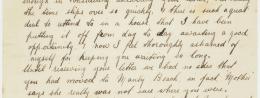 enough in
the time slips over so quickly. There is such a great
deal to attend to in a house that I have been
putting it off from day to day awaiting a good
opportunity & now I feel thoroughly ashamed of
myself for keeping you waiting so long.
Until receiving your letter we had no idea that
you had moved to Manly Beach in fact Mother
says she really was not sure where you were.